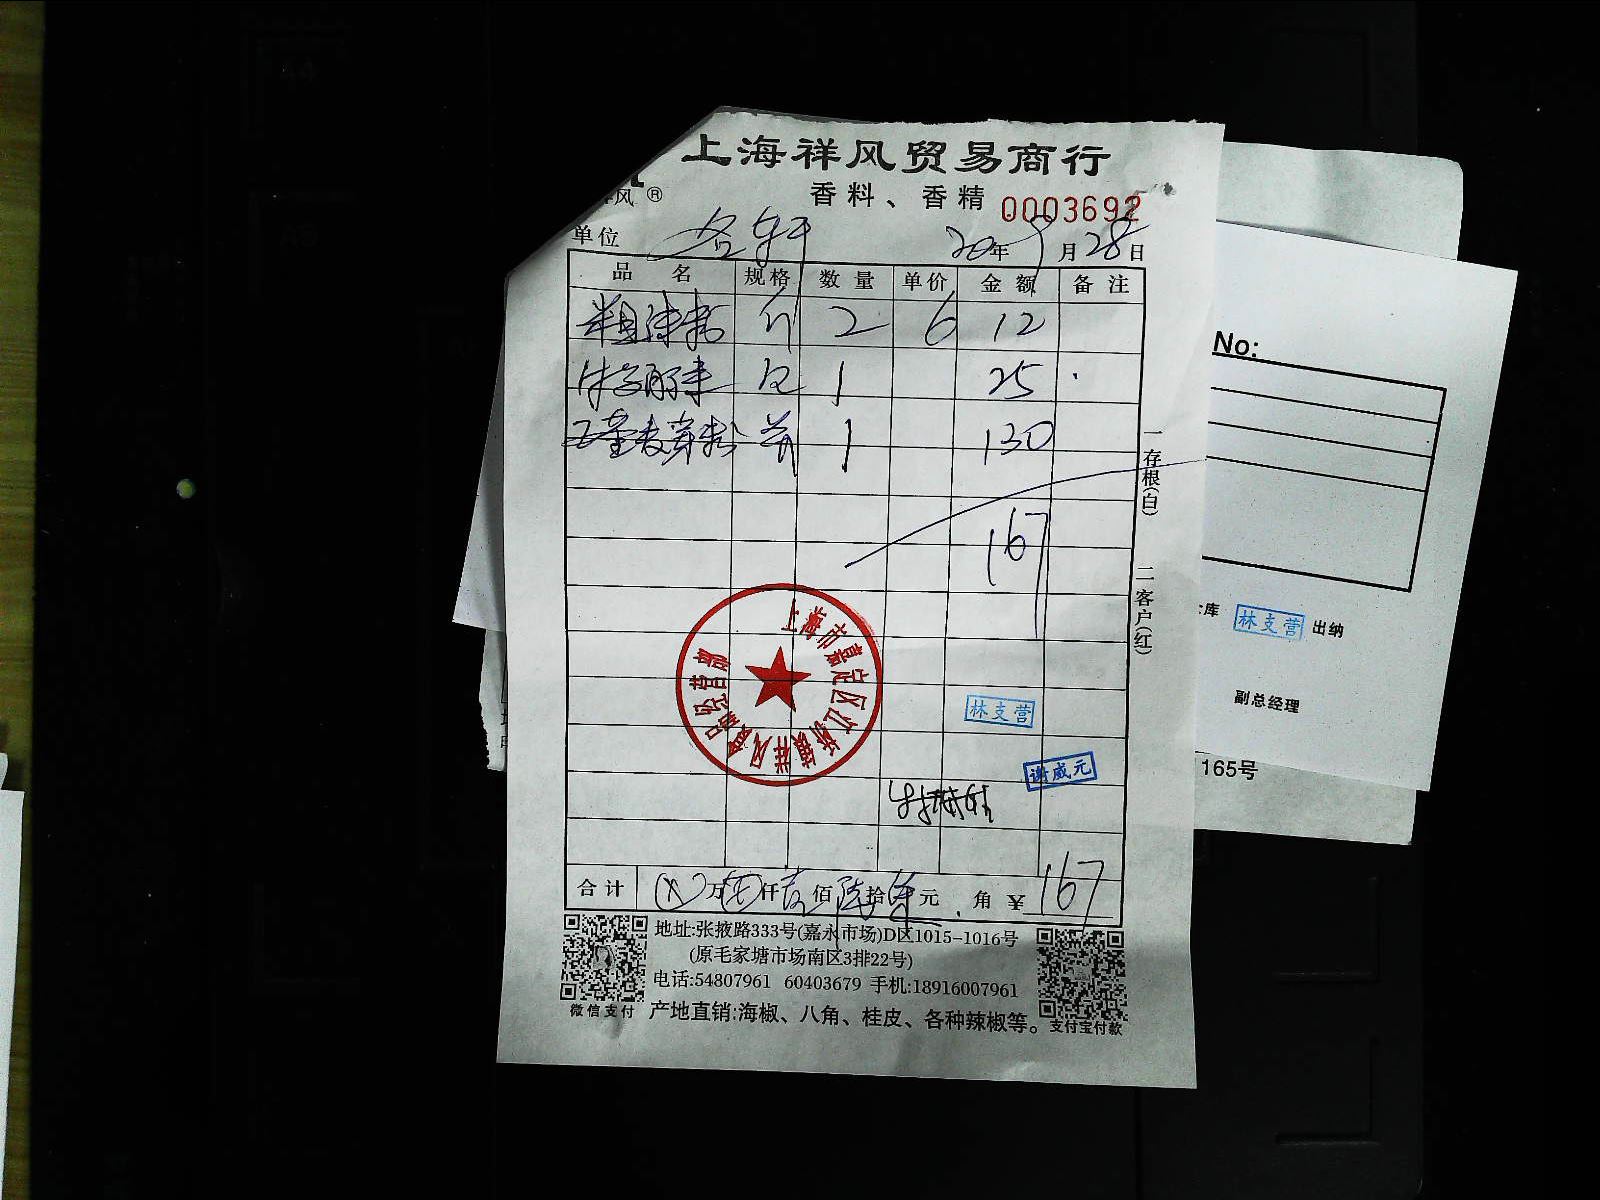 上海祥风贸易商行
风®
香料、香精 0003692
单位 名轩 20年9月28日
品名 规格 数量 单价 金额 备注
2 6 12
1 25
1 130
167
一存根(白) 二客户(红)
上海市嘉定区江桥镇祥风食品经营部
林支营
谢威元
合计 万 仟 壹佰陆拾柒元 角 ¥167
地址:张掖路333号(嘉永市场)D区1015-1016号
(原毛家塘市场南区3排22号)
电话:54807961 60403679 手机:18916007961
产地直销:海椒、八角、桂皮、各种辣椒等。
微信支付
支付宝付款
No:
库 林支营 出纳
副总经理
165号